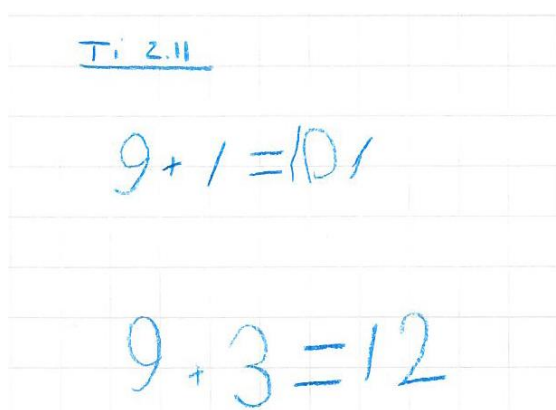 Ti 2.11
9 + 1 = 10 /
9 + 3 = 12